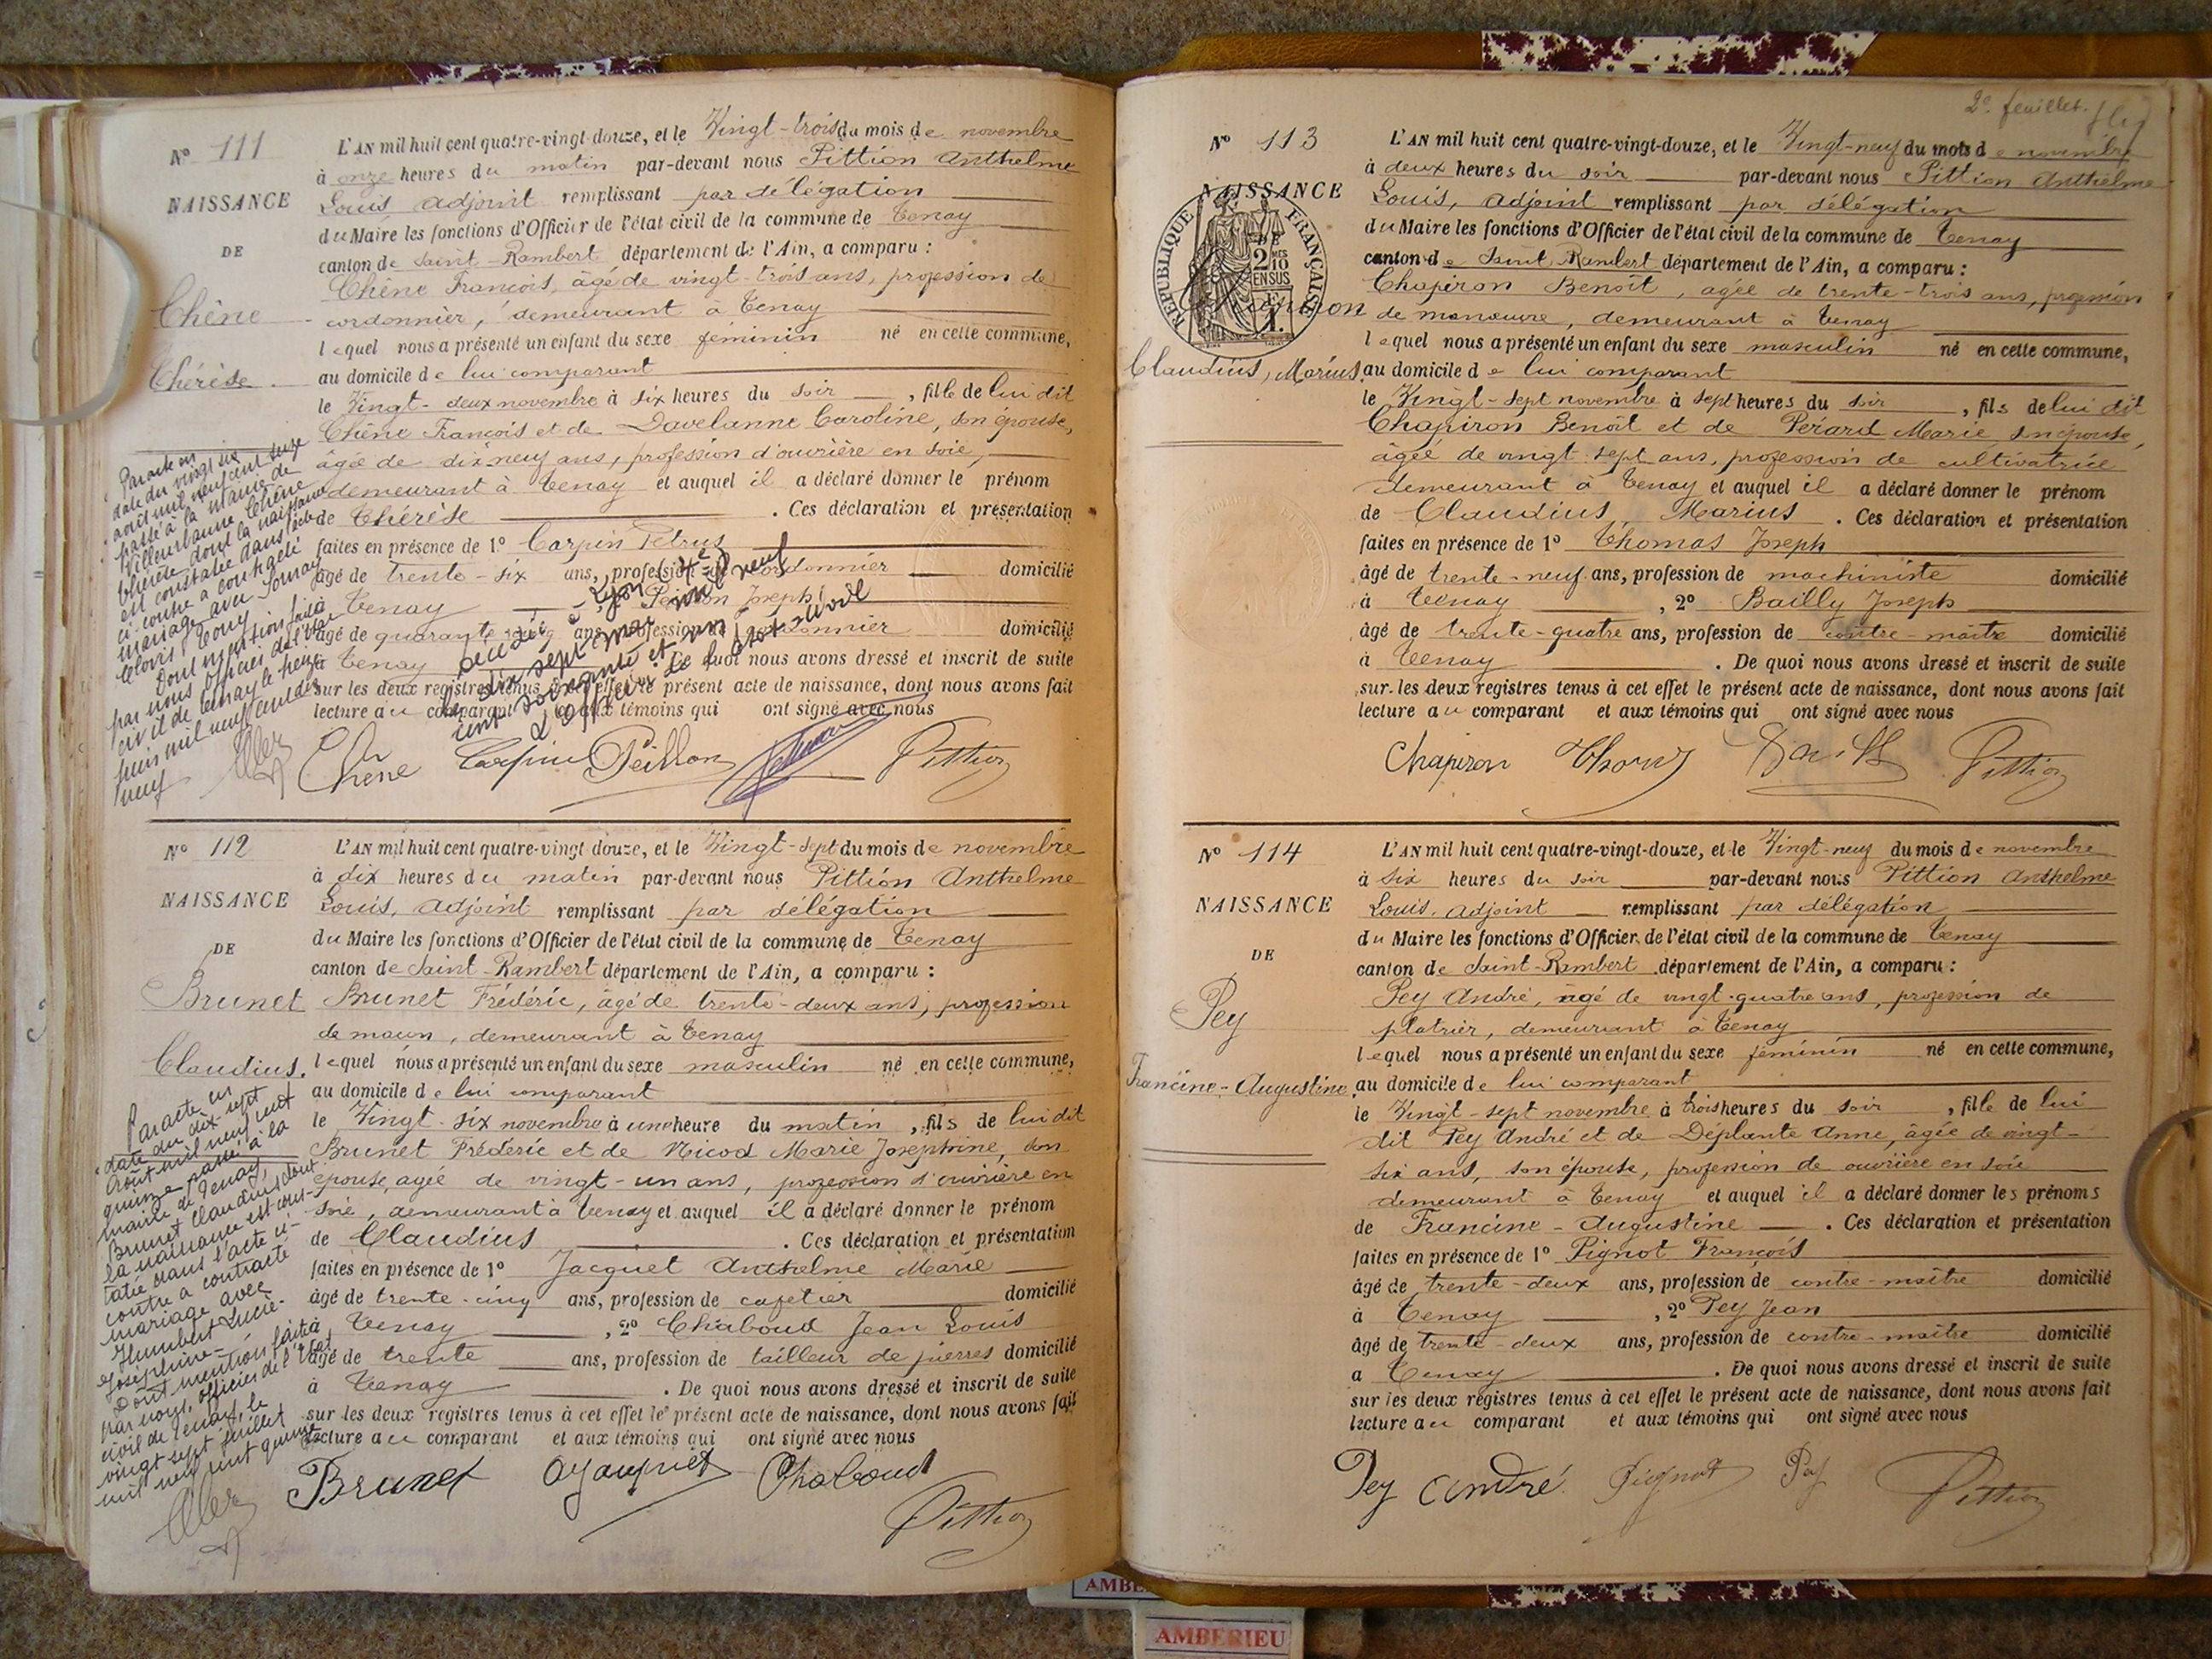 Nº 111
NAISSANCE
DE
Chêne
Thérèse
L'AN mil huit cent quatre-vingt-douze, et le Vingt-trois du mois de novembre
à onze heures du matin par-devant nous Pittion Anthelme
Louis adjoint remplissant par délégation
du Maire les fonctions d'Officier de l'état civil de la commune de Tenay
canton de Saint-Rambert département de l'Ain, a comparu :
Chêne François, âgé de vingt-trois ans, profession de
cordonnier, demeurant à Tenay
lequel nous a présenté un enfant du sexe féminin né en cette commune,
au domicile de lui comparant
le Vingt-deux novembre à six heures du soir, fille de lui dit
Chêne François et de Davelanne Caroline, son épouse,
âgée de dix-neuf ans, profession d'ouvrière en soie,
demeurant à Tenay et auquel il a déclaré donner le prénom
de Thérèse. Ces déclaration et présentation
faites en présence de 1º Carpin Petrus
âgé de trente-six ans, profession de cordonnier domicilié
à Tenay Joseph
âgé de quarante ans, profession de cordonnier domicilié
à Tenay. De quoi nous avons dressé et inscrit de suite
sur les deux registres tenus à cet effet le présent acte de naissance, dont nous avons fait
lecture au comparant et aux témoins qui ont signé avec nous
Par acte en
date du vingt six
août mil neuf cent seize
passé à la mairie de
Villeurbanne Chêne
Thérèse dont la naissance
est constatée dans l'acte
ci-contre a contracté
mariage avec
Clovis
Dont mention faite
par nous officier de l'état
civil de Tenay le
mil neuf cent dix
neuf
Décédée à Lyon (4e)
le dix sept mai mil neuf
cent soixante et un
L'officier de l'état-civil
Chêne Carpin Peillon Pittion
Nº 112
NAISSANCE
DE
Brunet
Claudius.
L'AN mil huit cent quatre-vingt douze, et le Vingt-sept du mois de novembre
à dix heures du matin par-devant nous Pittion Anthelme
Louis, adjoint remplissant par délégation
du Maire les fonctions d'Officier de l'état civil de la commune de Tenay
canton de Saint-Rambert département de l'Ain, a comparu :
Brunet Frédéric, âgé de trente-deux ans, profession
de maçon, demeurant à Tenay
lequel nous a présenté un enfant du sexe masculin né en cette commune,
au domicile de lui comparant
le Vingt-six novembre à une heure du matin, fils de lui dit
Brunet Frédéric et de Nicod Marie Joséphine, son
épouse, agée de vingt-un ans, profession d'ouvrière en
soie, demeurant à Tenay et auquel il a déclaré donner le prénom
de Claudius. Ces déclaration et présentation
faites en présence de 1º Jacquet Anthelme Marie
âgé de trente-cinq ans, profession de cafetier domicilié
à Tenay, 2º Chaboud Jean Louis
âgé de trente ans, profession de tailleur de pierres domicilié
à Tenay. De quoi nous avons dressé et inscrit de suite
sur les deux registres tenus à cet effet le présent acte de naissance, dont nous avons fait
lecture au comparant et aux témoins qui ont signé avec nous
Par acte en
date du dix-sept
août mil neuf cent
quinze passé à la
mairie de Tenay,
Brunet Claudius dont
la naissance est cons-
tatée dans l'acte ci-
contre a contracté
mariage avec
Humbert Lucie-
Joséphine-
Dont mention faite
par nous, officier de l'état
civil de Tenay, le
vingt sept juillet
mil neuf cent quinze
Brunet Chaboud
Pittion
2e feuillet.
Nº 113
NAISSANCE
DE
RÉPUBLIQUE FRANÇAISE
2 MES
10
EN SUS
Claudius, Marius
L'AN mil huit cent quatre-vingt-douze, et le Vingt-neuf du mois de novembre
à deux heures du soir par-devant nous Pittion Anthelme
Louis, adjoint remplissant par délégation
du Maire les fonctions d'Officier de l'état civil de la commune de Tenay
canton de Saint Rambert département de l'Ain, a comparu :
Chapiron Benoît, agée de trente-trois ans, profession
de manœuvre, demeurant à Tenay
lequel nous a présenté un enfant du sexe masculin né en cette commune,
au domicile de lui comparant
le Vingt-sept novembre à sept heures du soir, fils de lui dit
Chapiron Benoît et de Perard Marie son épouse,
âgée de vingt-sept ans, profession de cultivatrice
demeurant à Tenay et auquel il a déclaré donner le prénom
de Claudius Marius. Ces déclaration et présentation
faites en présence de 1º Thomas Joseph
âgé de trente-neuf ans, profession de machiniste domicilié
à Tenay, 2º Bailly Joseph
âgé de trente-quatre ans, profession de contre-maître domicilié
à Tenay. De quoi nous avons dressé et inscrit de suite
sur les deux registres tenus à cet effet le présent acte de naissance, dont nous avons fait
lecture au comparant et aux témoins qui ont signé avec nous
Chapiron Thomas Pittion
Nº 114
NAISSANCE
DE
Pey
Francine-Augustine
L'AN mil huit cent quatre-vingt-douze, et le Vingt-neuf du mois de novembre
à six heures du soir par-devant nous Pittion Anthelme
Louis. adjoint remplissant par délégation
du Maire les fonctions d'Officier de l'état civil de la commune de Tenay
canton de Saint-Rambert département de l'Ain, a comparu :
Pey André, âgé de vingt-quatre ans, profession de
platrier, demeurant à Tenay
lequel nous a présenté un enfant du sexe féminin né en cette commune,
au domicile de lui comparant
le Vingt-sept novembre à trois heures du soir, fille de lui
dit Pey André et de Déplante Anne, âgée de vingt-
six ans, son épouse, profession de ouvrière en soie
demeurant à Tenay et auquel il a déclaré donner les prénoms
de Francine-Augustine. Ces déclaration et présentation
faites en présence de 1º Pignot François
âgé de trente-deux ans, profession de contre-maître domicilié
à Tenay, 2º Pey Jean
âgé de trente-deux ans, profession de contre-maître domicilié
à Tenay. De quoi nous avons dressé et inscrit de suite
sur les deux registres tenus à cet effet le présent acte de naissance, dont nous avons fait
lecture au comparant et aux témoins qui ont signé avec nous
Pey André Pignot Pey Pittion
AMBERIEU